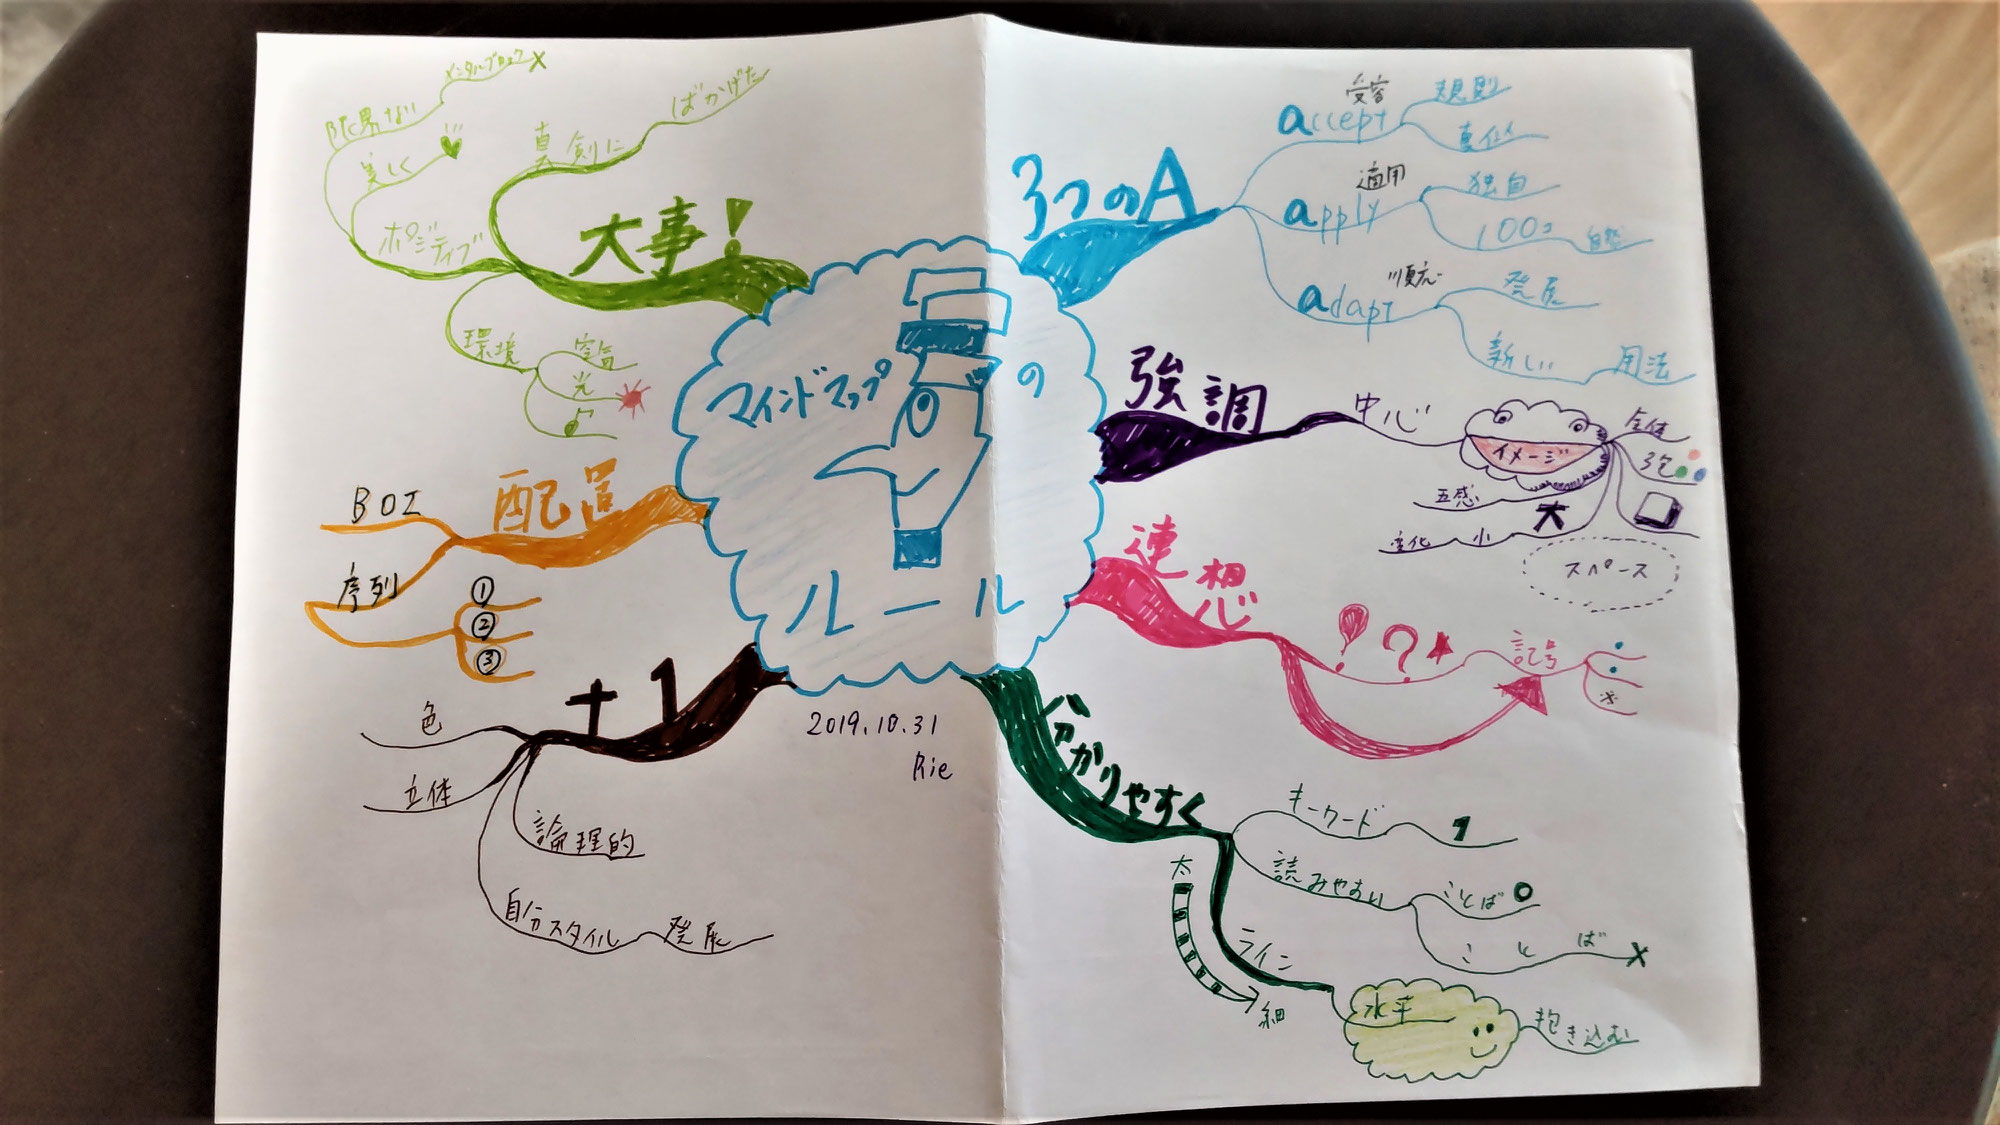 マインドマップ
の
ルール
2019.10.31
Rie
3つのA
受容
accept
規則
真似
適用
apply
独自
100コ
自然
順応
adapt
発展
新しい
用法
強調
中心
イメージ
全体
3色
五感
大
小
変化
スペース
連想
!
?
記号
分かりやすく
キーワード
1
読みやすい
ことば
ことば
×
ライン
太
細
水平
抱き込む
+1
色
立体
論理的
自分スタイル
発展
配置
BOI
序列
①
②
③
大事!
真剣に
ばかげた
ポジティブ
美しく
限界ない
メンタルブロック×
環境
空気
光